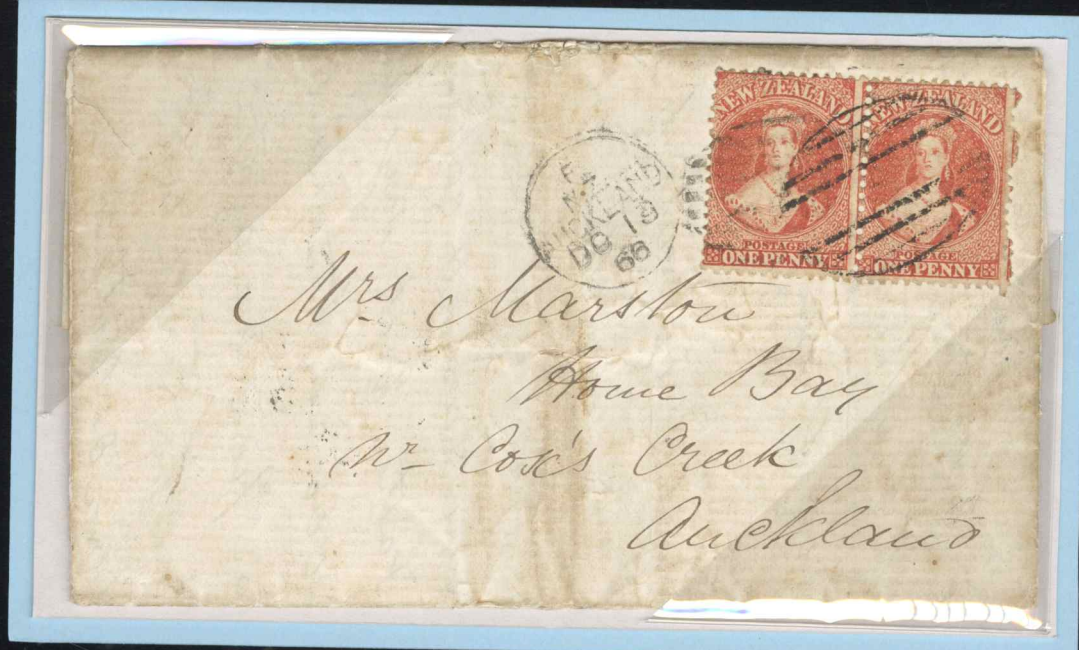 NEW ZEALAND
POSTAGE
ONE PENNY
NEW ZEALAND
POSTAGE
ONE PENNY
AUCKLAND
DC 19
66
Mrs Marston
Home Bay
Nr Cox's Creek
Auckland